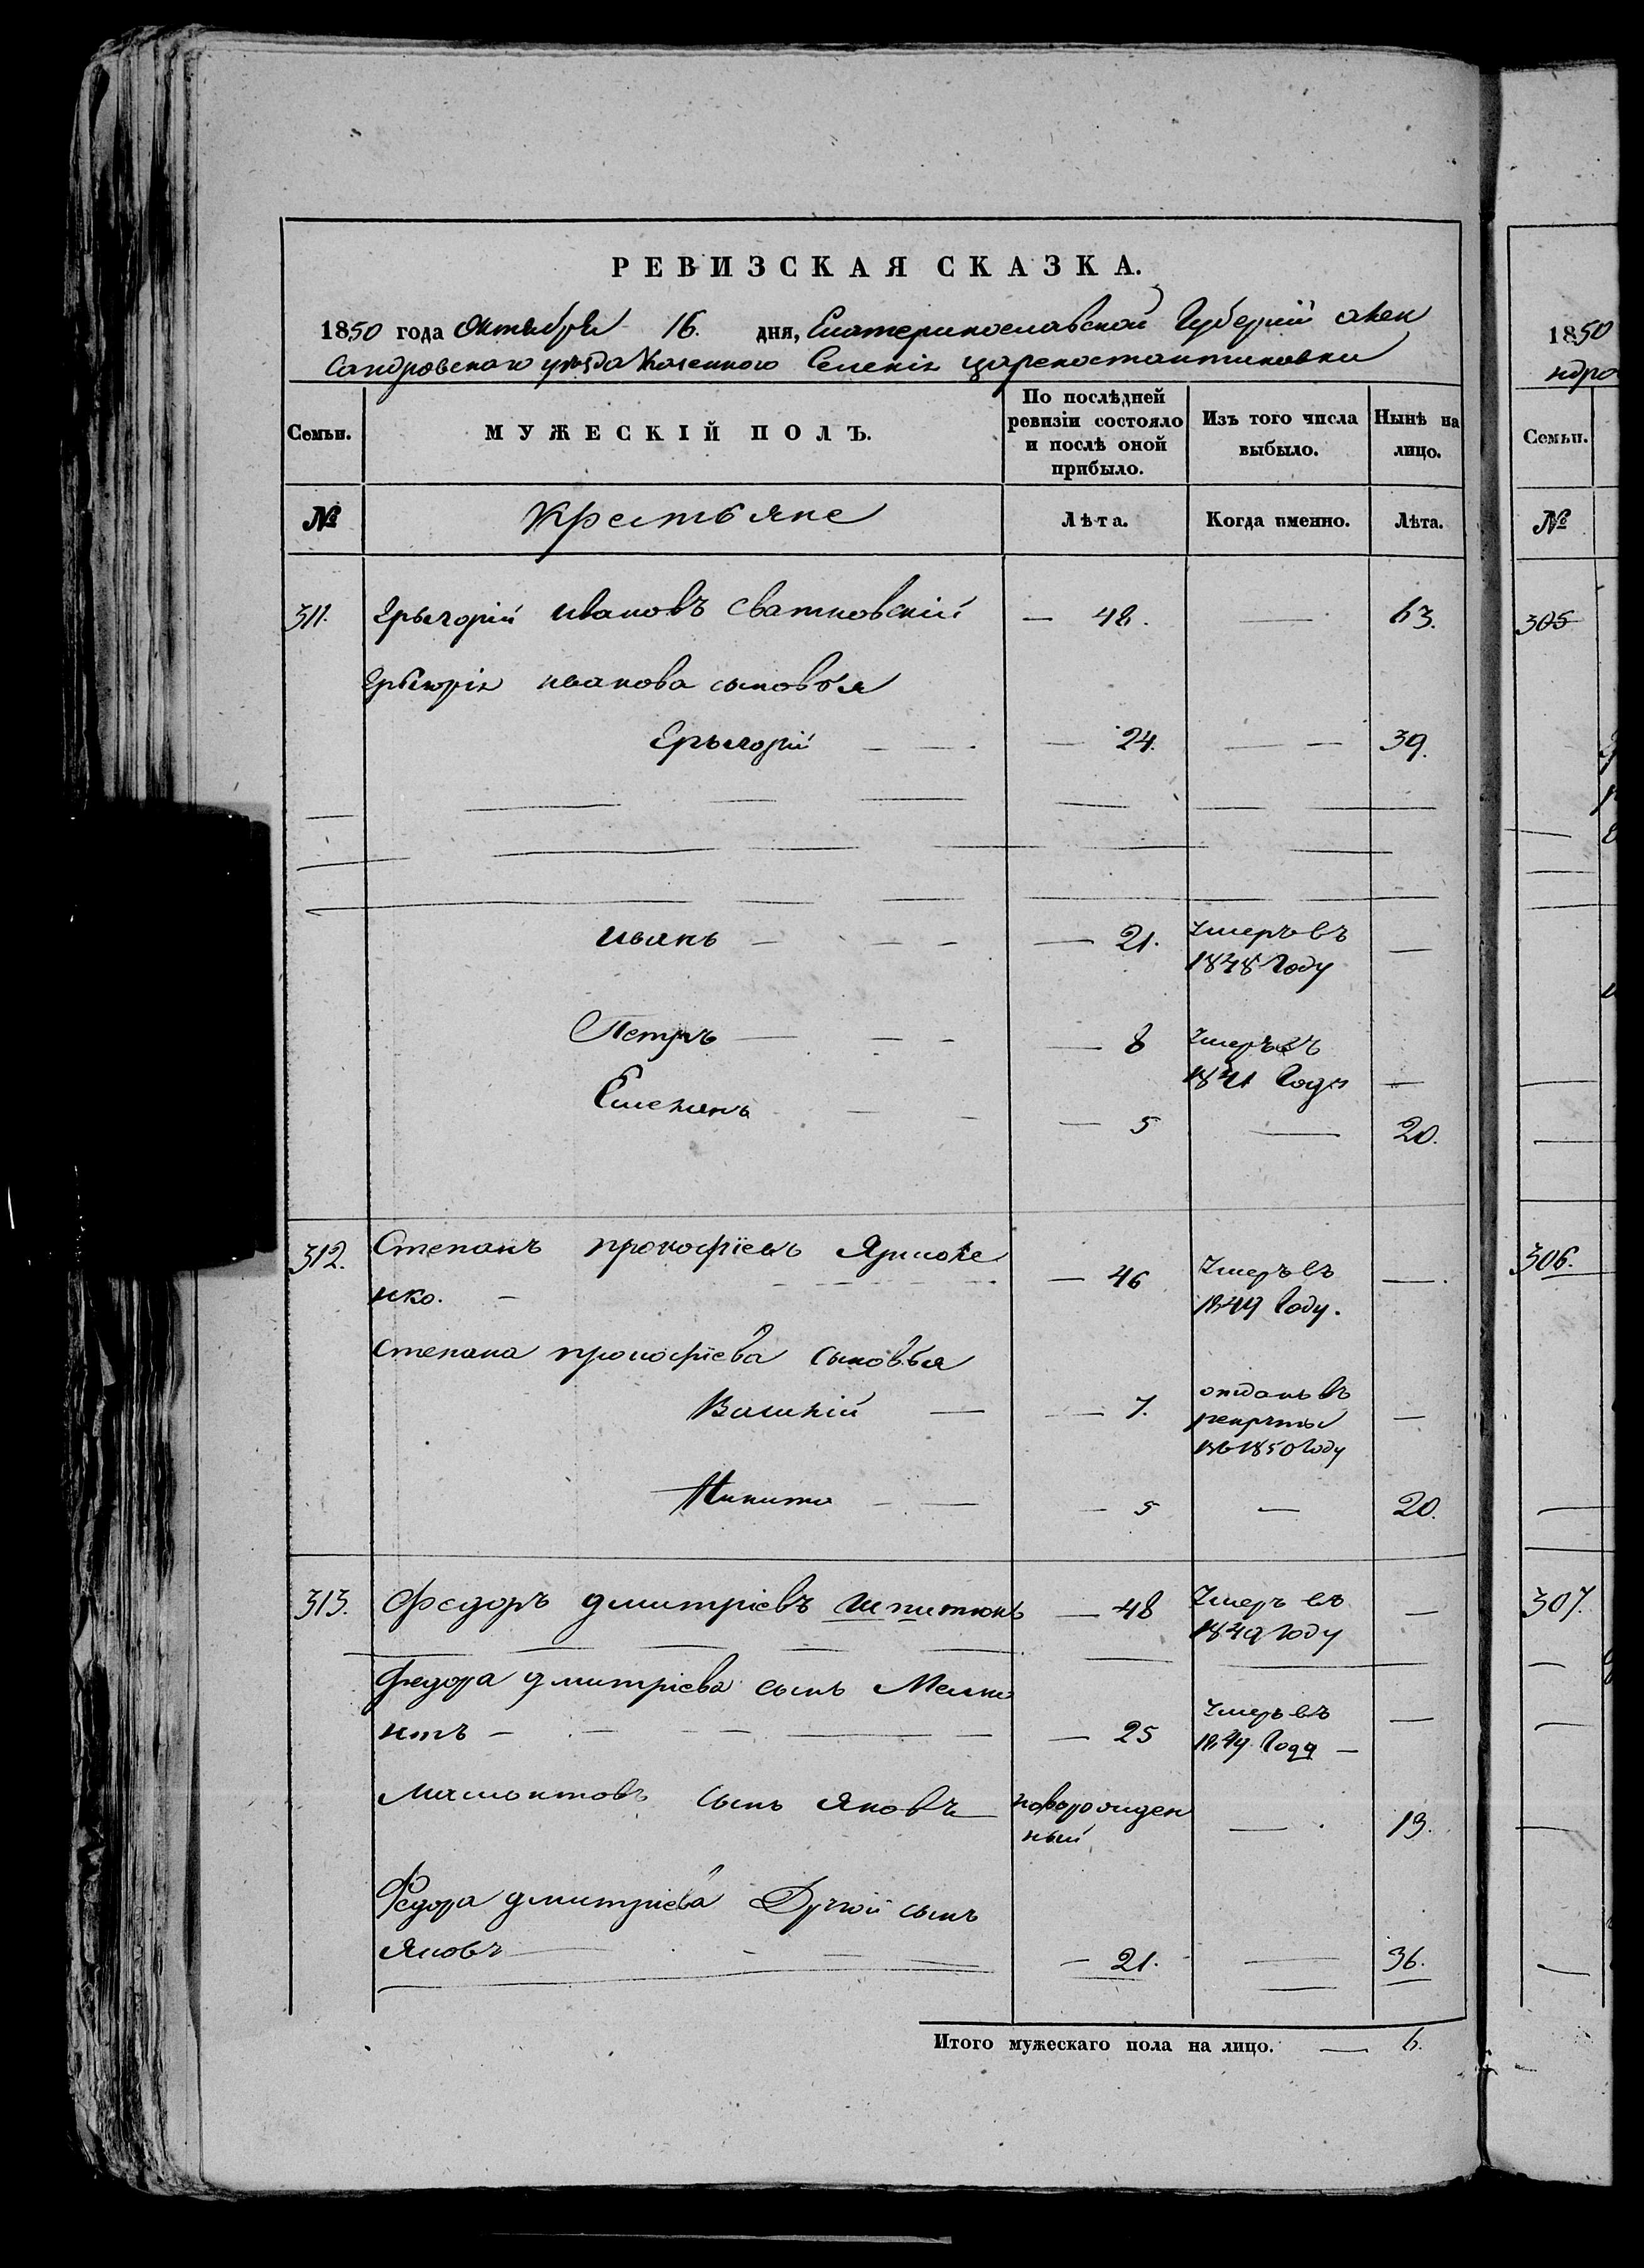 РЕВИЗСКАЯ СКАЗКА.
1850 года Октября 16. дня, Екатеринославской Губерніи Алек
сандровскаго уѣзда Казенного Селенія Цареконстантиновки
Семьи. МУЖЕСКІЙ ПОЛЪ. По послѣдней ревизіи состояло и послѣ оной прибыло. Изъ того числа выбыло. Нынѣ на лицо.
№ Крестьяне Лѣта. Когда именно. Лѣта.
311. Грыгорій Ивановъ Сватковскій — 48. — 63.
Грыгорія Иванова сыновья
Грыгорій — — 24. — — 39.
Иванъ — — 21. Умеръ въ 1848 Году —
Петръ — — 8 Умеръ въ 1841 Году —
Емельянъ — — 5 — 20.
312. Степанъ Прокофіевъ Ярмоле
нко. — — 46 Умеръ въ 1849 Году. —
Степана Прокофіева сыновья
— 7. отданъ въ рекруты въ 1850 Году —
Никита — — 5 — 20.
313. Федоръ Дмитріевъ — 48 Умеръ въ 1849 Году —
Федора Дмитріева сынъ Мамо
нтъ — — 25 Умеръ въ 1849 Году —
Мамонтовъ сынъ Яковъ новорожден
ный — 13.
Федора Дмитріева Другій сынъ
Яковъ — — 21. — 36.
Итого мужескаго пола на лицо. — 6.
1850
ндро
Семьи.
№
305
306.
307.